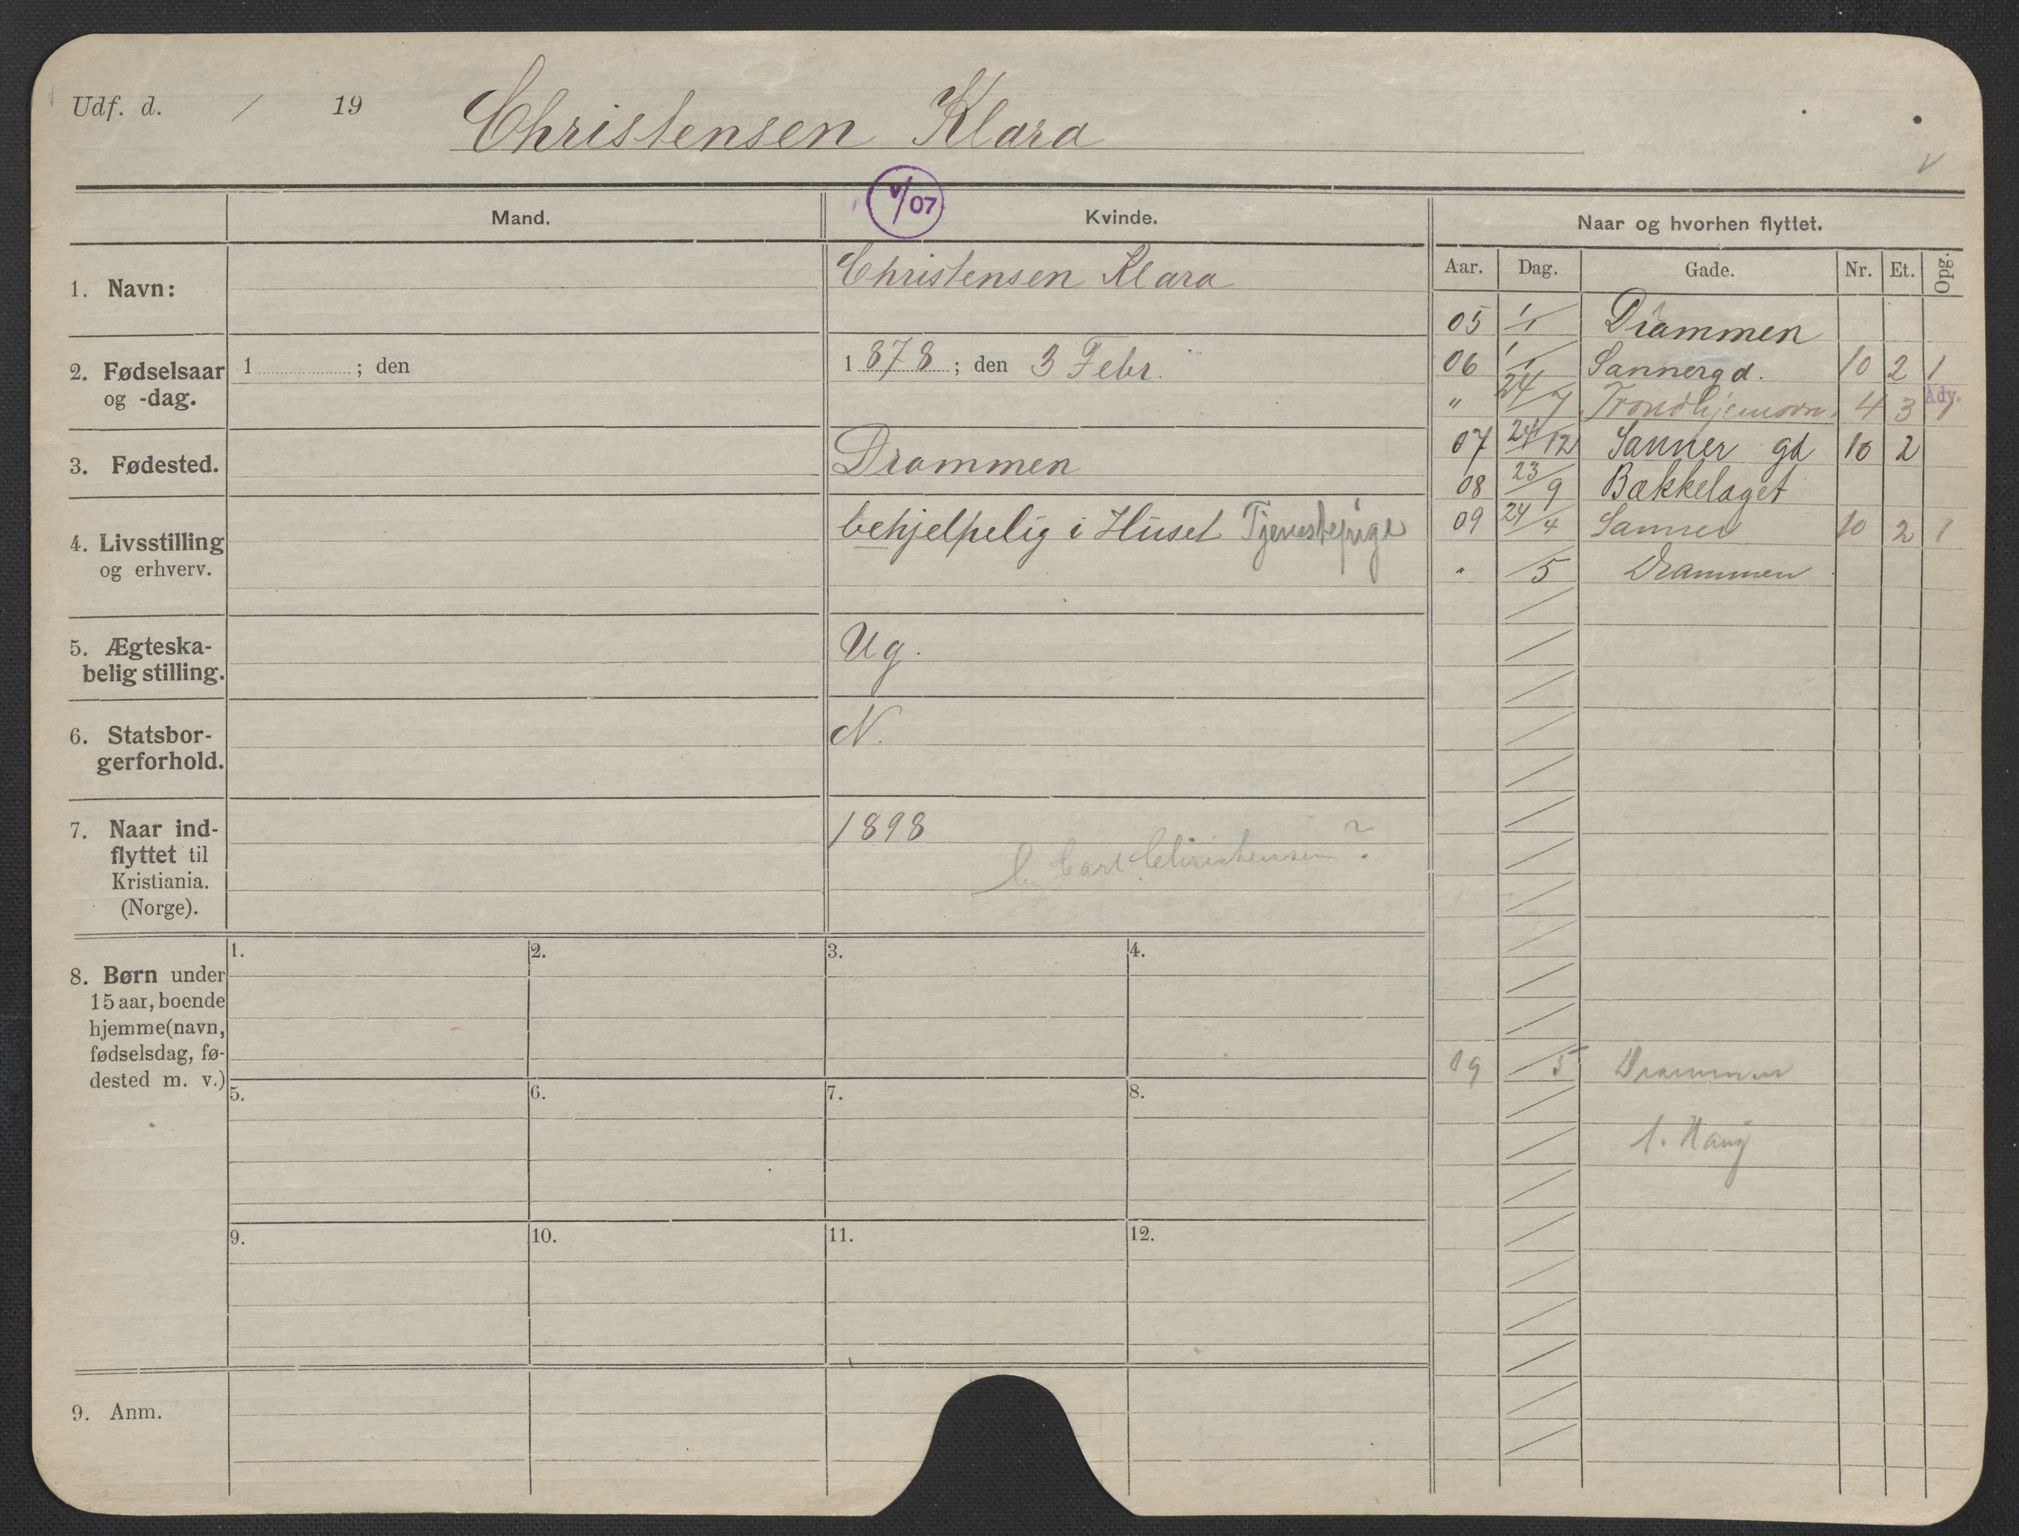 Udf. d. / 19 Christensen Klara
V/07
Mand. Kvinde. Naar og hvorhen flyttet.
Aar. Dag. Gade. Nr. Et. Opg.
1. Navn: Christensen Klara
2. Fødselsaar og -dag. 1 ; den 1878 ; den 3 Febr.
3. Fødested. Drammen
4. Livsstilling og erhverv. behjelpelig i Huset Tjenestepige
5. Ægteskabelig stilling. Ug.
6. Statsborgerforhold. N.
7. Naar indflyttet til Kristiania. (Norge). 1898
Carl Christensen?
8. Børn under 15 aar, boende hjemme (navn, fødselsdag, fødested m. v.)
1. 2. 3. 4.
5. 6. 7. 8.
9. 10. 11. 12.
9. Anm.
05 1/1 Drammen
06 1/1 Sannergd. 10 2 1
" 24/7 Trondhjemsvn. 4 3 1 Adv.
07 24/12 Sanner gd 10 2
08 23/9 Bækkelaget
09 24/4 Sanner 10 2 1
" /5 Drammen
09 /5 Drammen